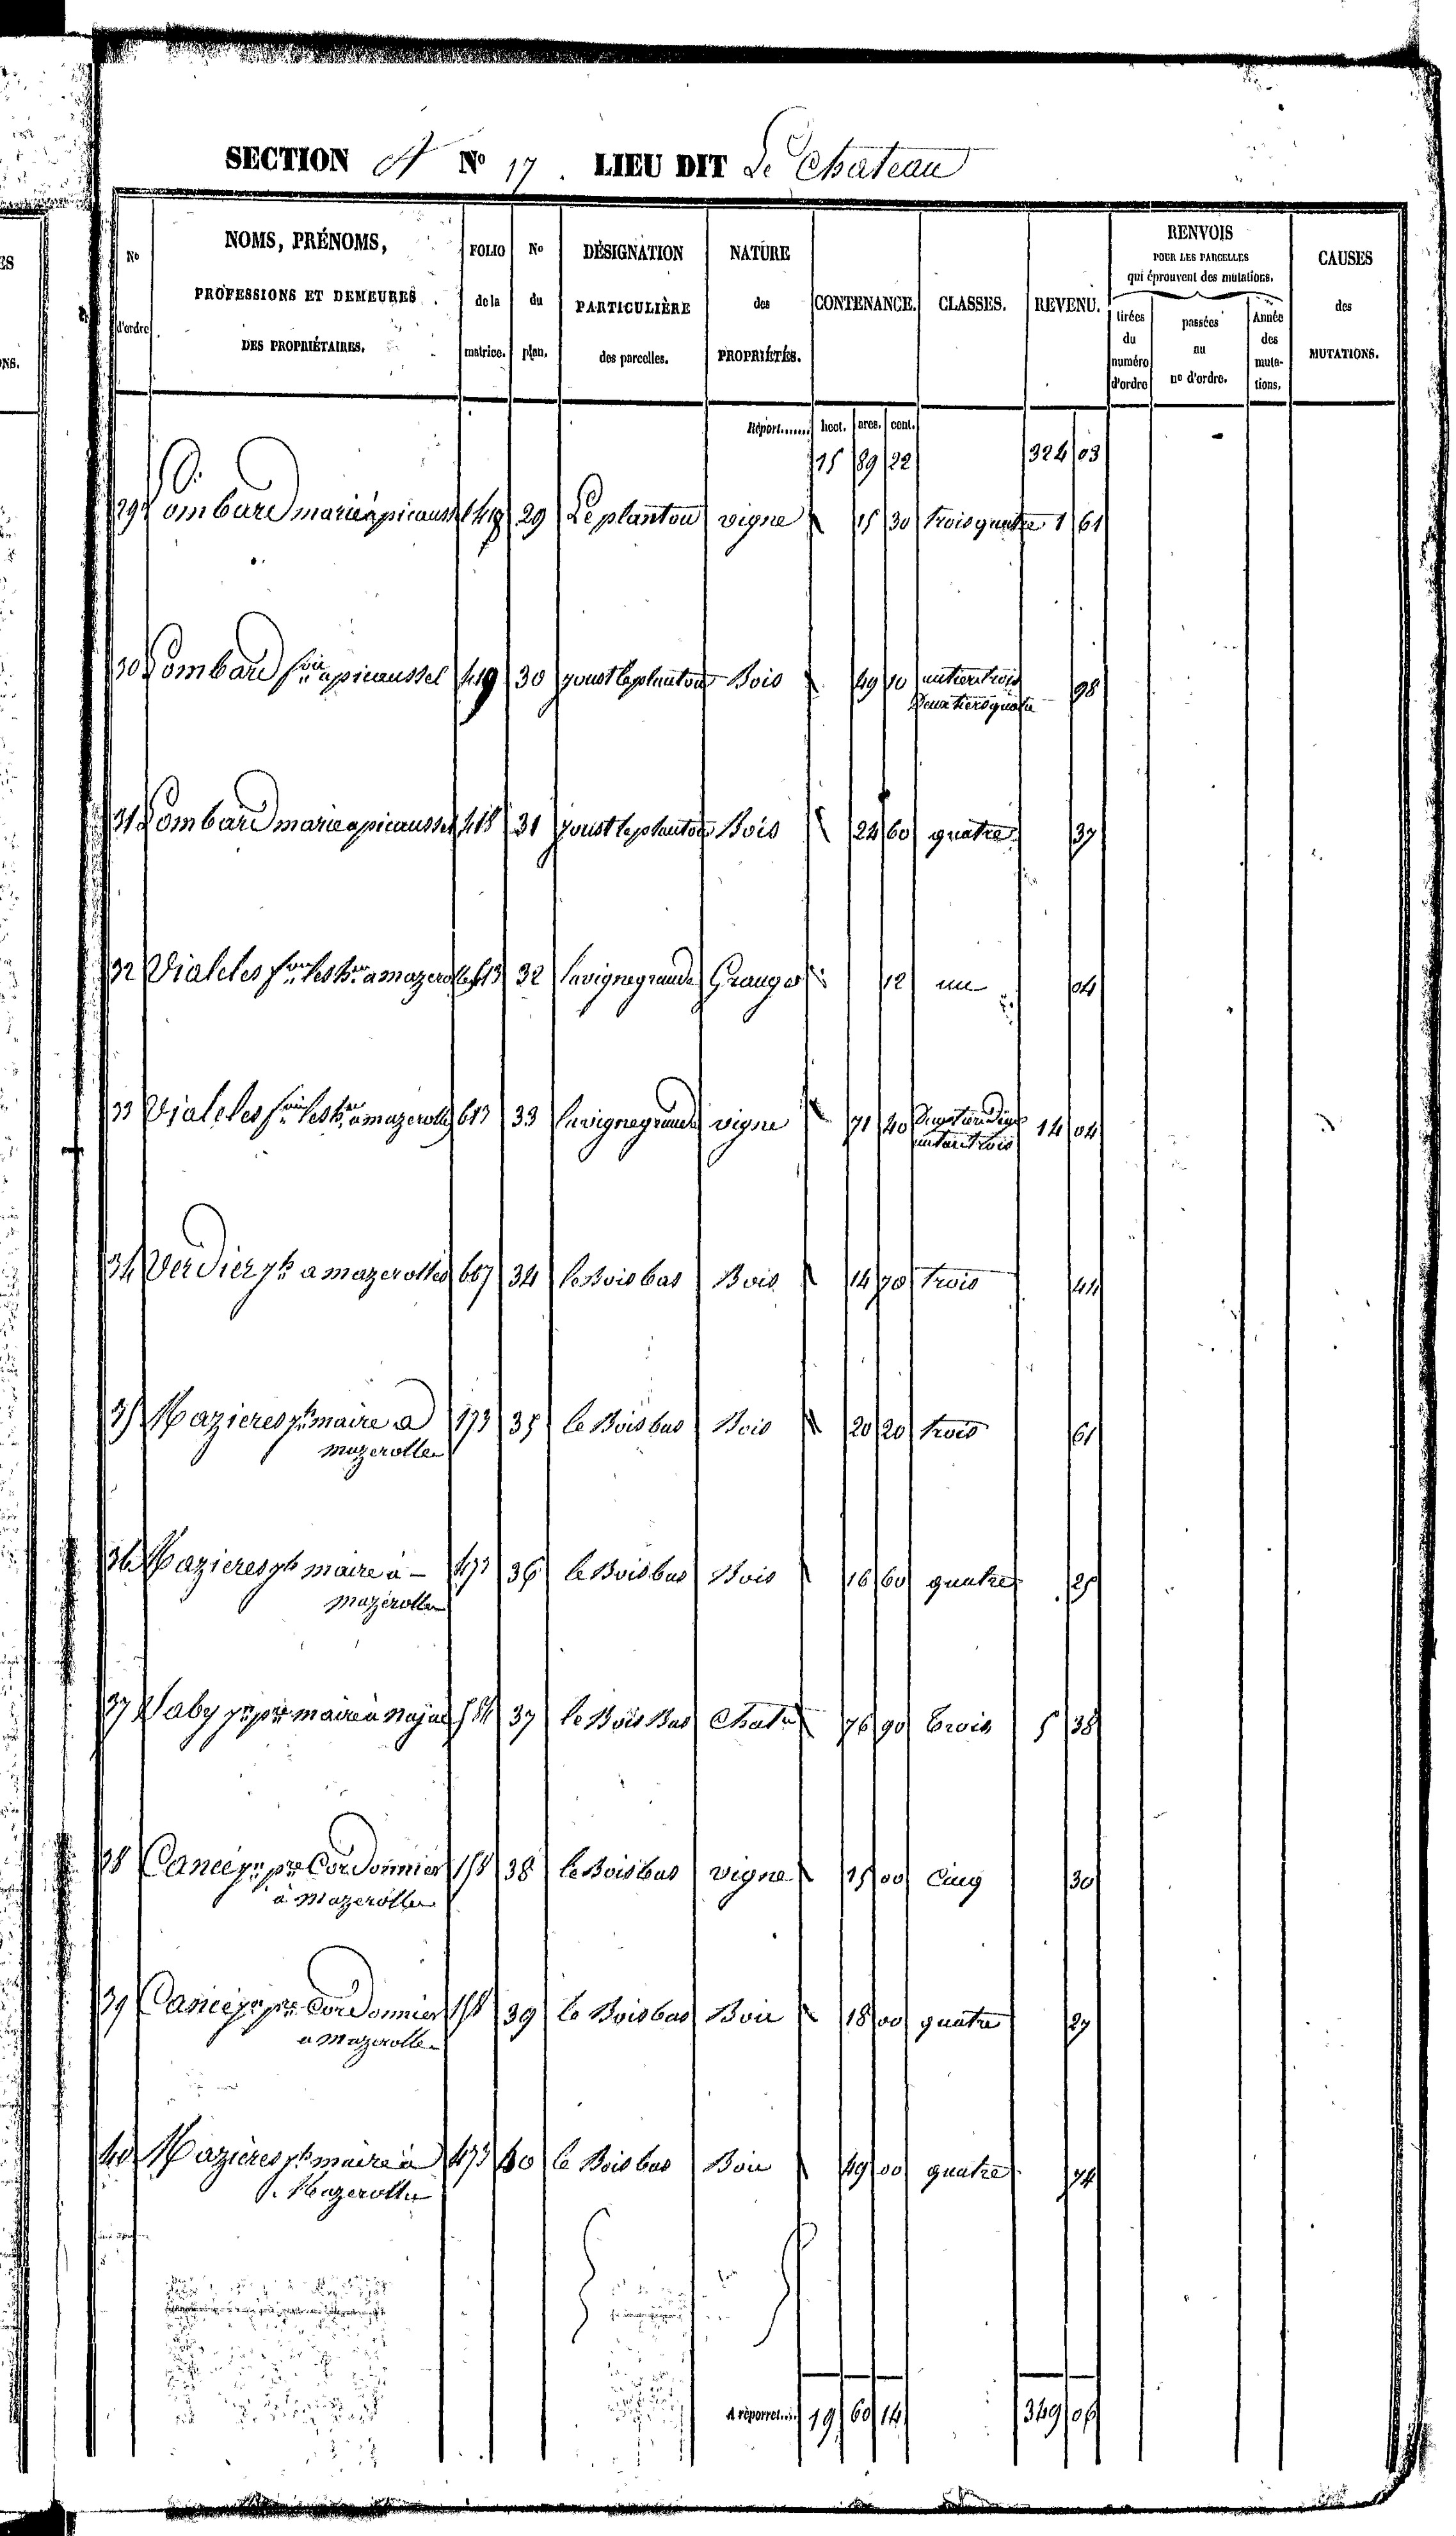 SECTION A N° 17. LIEU DIT Le Chateau
N° d'ordre | NOMS, PRÉNOMS, PROFESSIONS ET DEMEURES DES PROPRIÉTAIRES. | FOLIO de la matrice. | N° du plan. | DÉSIGNATION PARTICULIÈRE des parcelles. | NATURE des PROPRIÉTÉS. | CONTENANCE. | CLASSES. | REVENU. | RENVOIS POUR LES PARCELLES qui éprouvent des mutations. | tirées du numéro d'ordre | passées au n° d'ordre. | Année des muta-tions. | CAUSES des MUTATIONS.
Réport....... hect. ares. cent.
15 89 22 324 03
29 Lombard marie à picaussel 418 29 Le plantou vigne 15 30 trois quatre 1 61
30 Lombard a picaussel 419 30 joust le plantou Bois 49 10 un tiers trois 98
Deux tiers quatre
31 Lombard marie a picaussel 418 31 joust le plantou Bois 24 60 quatre 37
32 Vialeles les h.ers a mazerolles 613 32 la vigne grande Granges 12 un 04
33 Vialeles les h.ers a mazerolles 613 33 la vigne grande vigne 71 40 Deux tiers Deux 14 04
un tiers trois
34 Verdier jh a mazerolles 607 34 le Bois bas Bois 14 70 trois 44
35 Mazieres jh maire a 473 35 le Bois bas Bois 20 20 trois 61
mazerolles
36 Mazieres jh maire à 473 36 le Bois bas Bois 16 60 quatre 25
mazerolles
37 jn pre maire à Najac 37 le Bois Bas Chatn 76 90 trois 5 38
38 Cance jn pre Cordonnier 158 38 le Bois bas vigne 15 00 Cinq 30
à Mazerolles
39 Cance jn pre Cordonnier 158 39 le Bois bas Bois 18 00 quatre 27
a Mazerolles
40 Mazières jh maire à 473 40 le Bois bas Bois 49 00 quatre 74
Mazerolles
A réporter.... 19 60 14 349 06